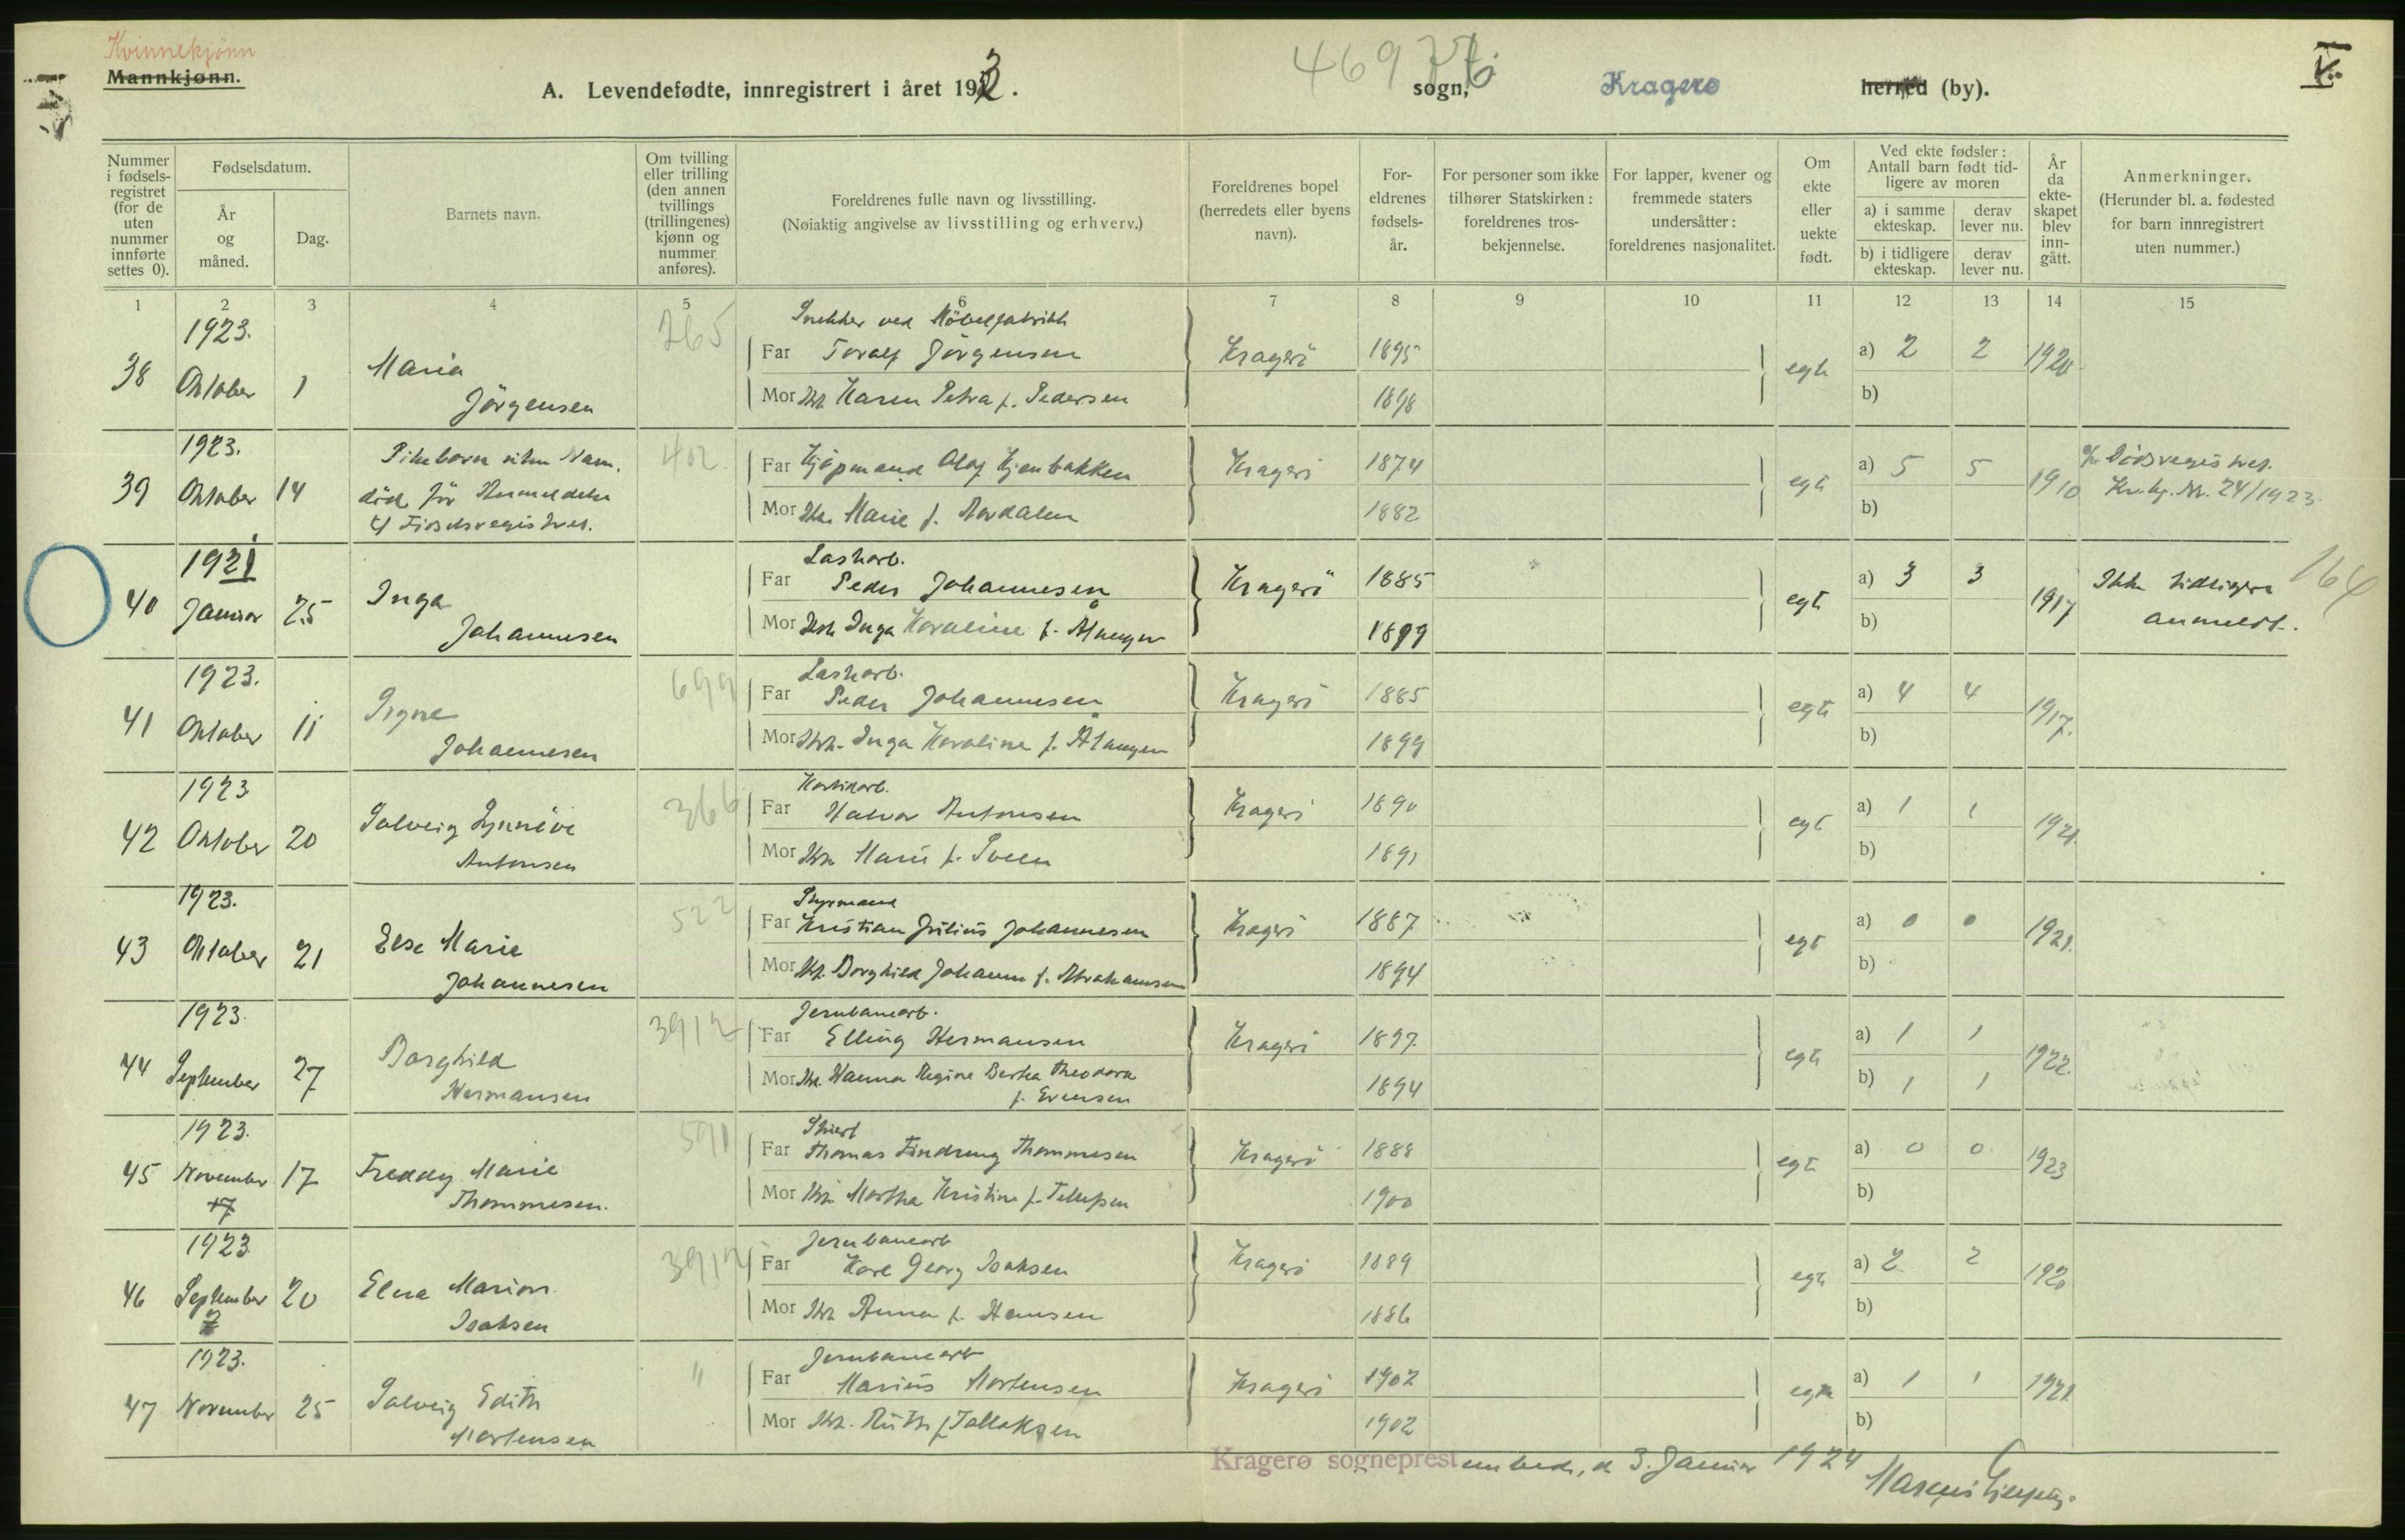 Kvinnekjønn
Mannkjønn.
A. Levendefødte, innregistrert i året 1923.
469
sogn,
Kragerø
herred (by).
Nummer i fødselsregistret (for de uten nummer innførte settes 0).
Fødselsdatum.
År og måned.
Dag.
Barnets navn.
Om tvilling eller trilling (den annen tvillings (trillingenes) kjønn og nummer anføres).
Foreldrenes fulle navn og livsstilling.
(Nøiaktig angivelse av livsstilling og erhverv.)
Foreldrenes bopel (herredets eller byens navn).
Foreldrenes fødselsår.
For personer som ikke tilhører Statskirken: foreldrenes trosbekjennelse.
For lapper, kvener og fremmede staters undersåtter: foreldrenes nasjonalitet.
Om ekte eller uekte født.
Ved ekte fødsler: Antall barn født tidligere av moren
a) i samme ekteskap.
derav lever nu.
b) i tidligere ekteskap.
derav lever nu.
År da ekteskapet blev inngått.
Anmerkninger.
(Herunder bl. a. fødested for barn innregistrert uten nummer.)
1 2 3 4 5 6 7 8 9 10 11 12 13 14 15
1923. 265 Snekker ved Möbelfabrikk
38 Oktober 1 Maria Jörgensen
Far Toralf Jörgensen Kragerö 1895 egte a) 2 2 1920
Mor Karen Petra f. Pedersen 1898 b)
1923. Pikebarn uten Navn, 402
39 Oktober 14 död för Anmeldelse t/ Födselsregistret.
Far Kjöpmand Olaf Kjenbakken Kragerö 1874 egte a) 5 5 1910 Dödsregistret. Kr. kj. Nr. 24/1923.
Mor Marie f. Aardalen 1882 b)
1921 Laskarb.
40 Januar 25 Inga Johannesen
Far Peder Johannesen Kragerö 1885 egte a) 3 3 1917 Ikke tidligere anmeldt. 164
Mor Inga Karoline f. 1899 b)
1923. 699 Laskarb.
41 Oktober 11 Signe Johannesen
Far Peder Johannesen Kragerö 1885 egte a) 4 4 1917.
Mor Inga Karoline f. 1899 b)
1923 366
42 Oktober 20 Solveig Synnöve Antonsen
Far Halvor Antonsen Kragerö 1890 egte a) 1 1 1921.
Mor Marie f. Sveen 1891 b)
1923. 522 Styrmand
43 Oktober 21 Else Marie Johannesen
Far Kristian Julius Johannesen Kragerö 1887 egte a) 0 0 1921.
Mor Borghild Johanne f. Abrahamsen 1894 b)
1923. 3912 Jernbanearb.
44 September 27 Borghild Hermansen
Far Elling Hermansen Kragerö 1897 egte a) 1 1 1922.
Mor Hanna Regine Bertha Theodora f. Evensen 1894 b) 1 1
1923. 591
45 November 17 Freddy Marie Thommesen.
Far Thomas Findreng Thommesen Kragerö 1888 egte a) 0 0 1923
Mor Martha Kristine f. Tellefsen 1900 b)
1923 3912 Jernbanearb
46 September 20 Elna Marion Isaksen
Far Karl Georg Isaksen Kragerö 1889 egte a) 2 2 1920
Mor Anna f. Hansen 1886 b)
1923. " Jernbanearb
47 November 25 Solveig Edith Mortensen
Far Marius Mortensen Kragerö 1902 egte a) 1 1 1921
Mor Ruth f. Tallaksen 1902 b)
Kragerø sogneprestembede, d 3. Januar 1924